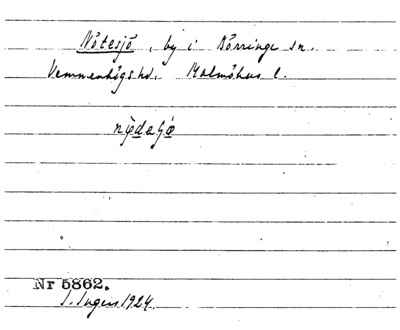 Nötesjö, by i Börringe sn.
Vemmenhögs hd. Malmöhus l.
Nr 5862.
I. Ingers 1924.